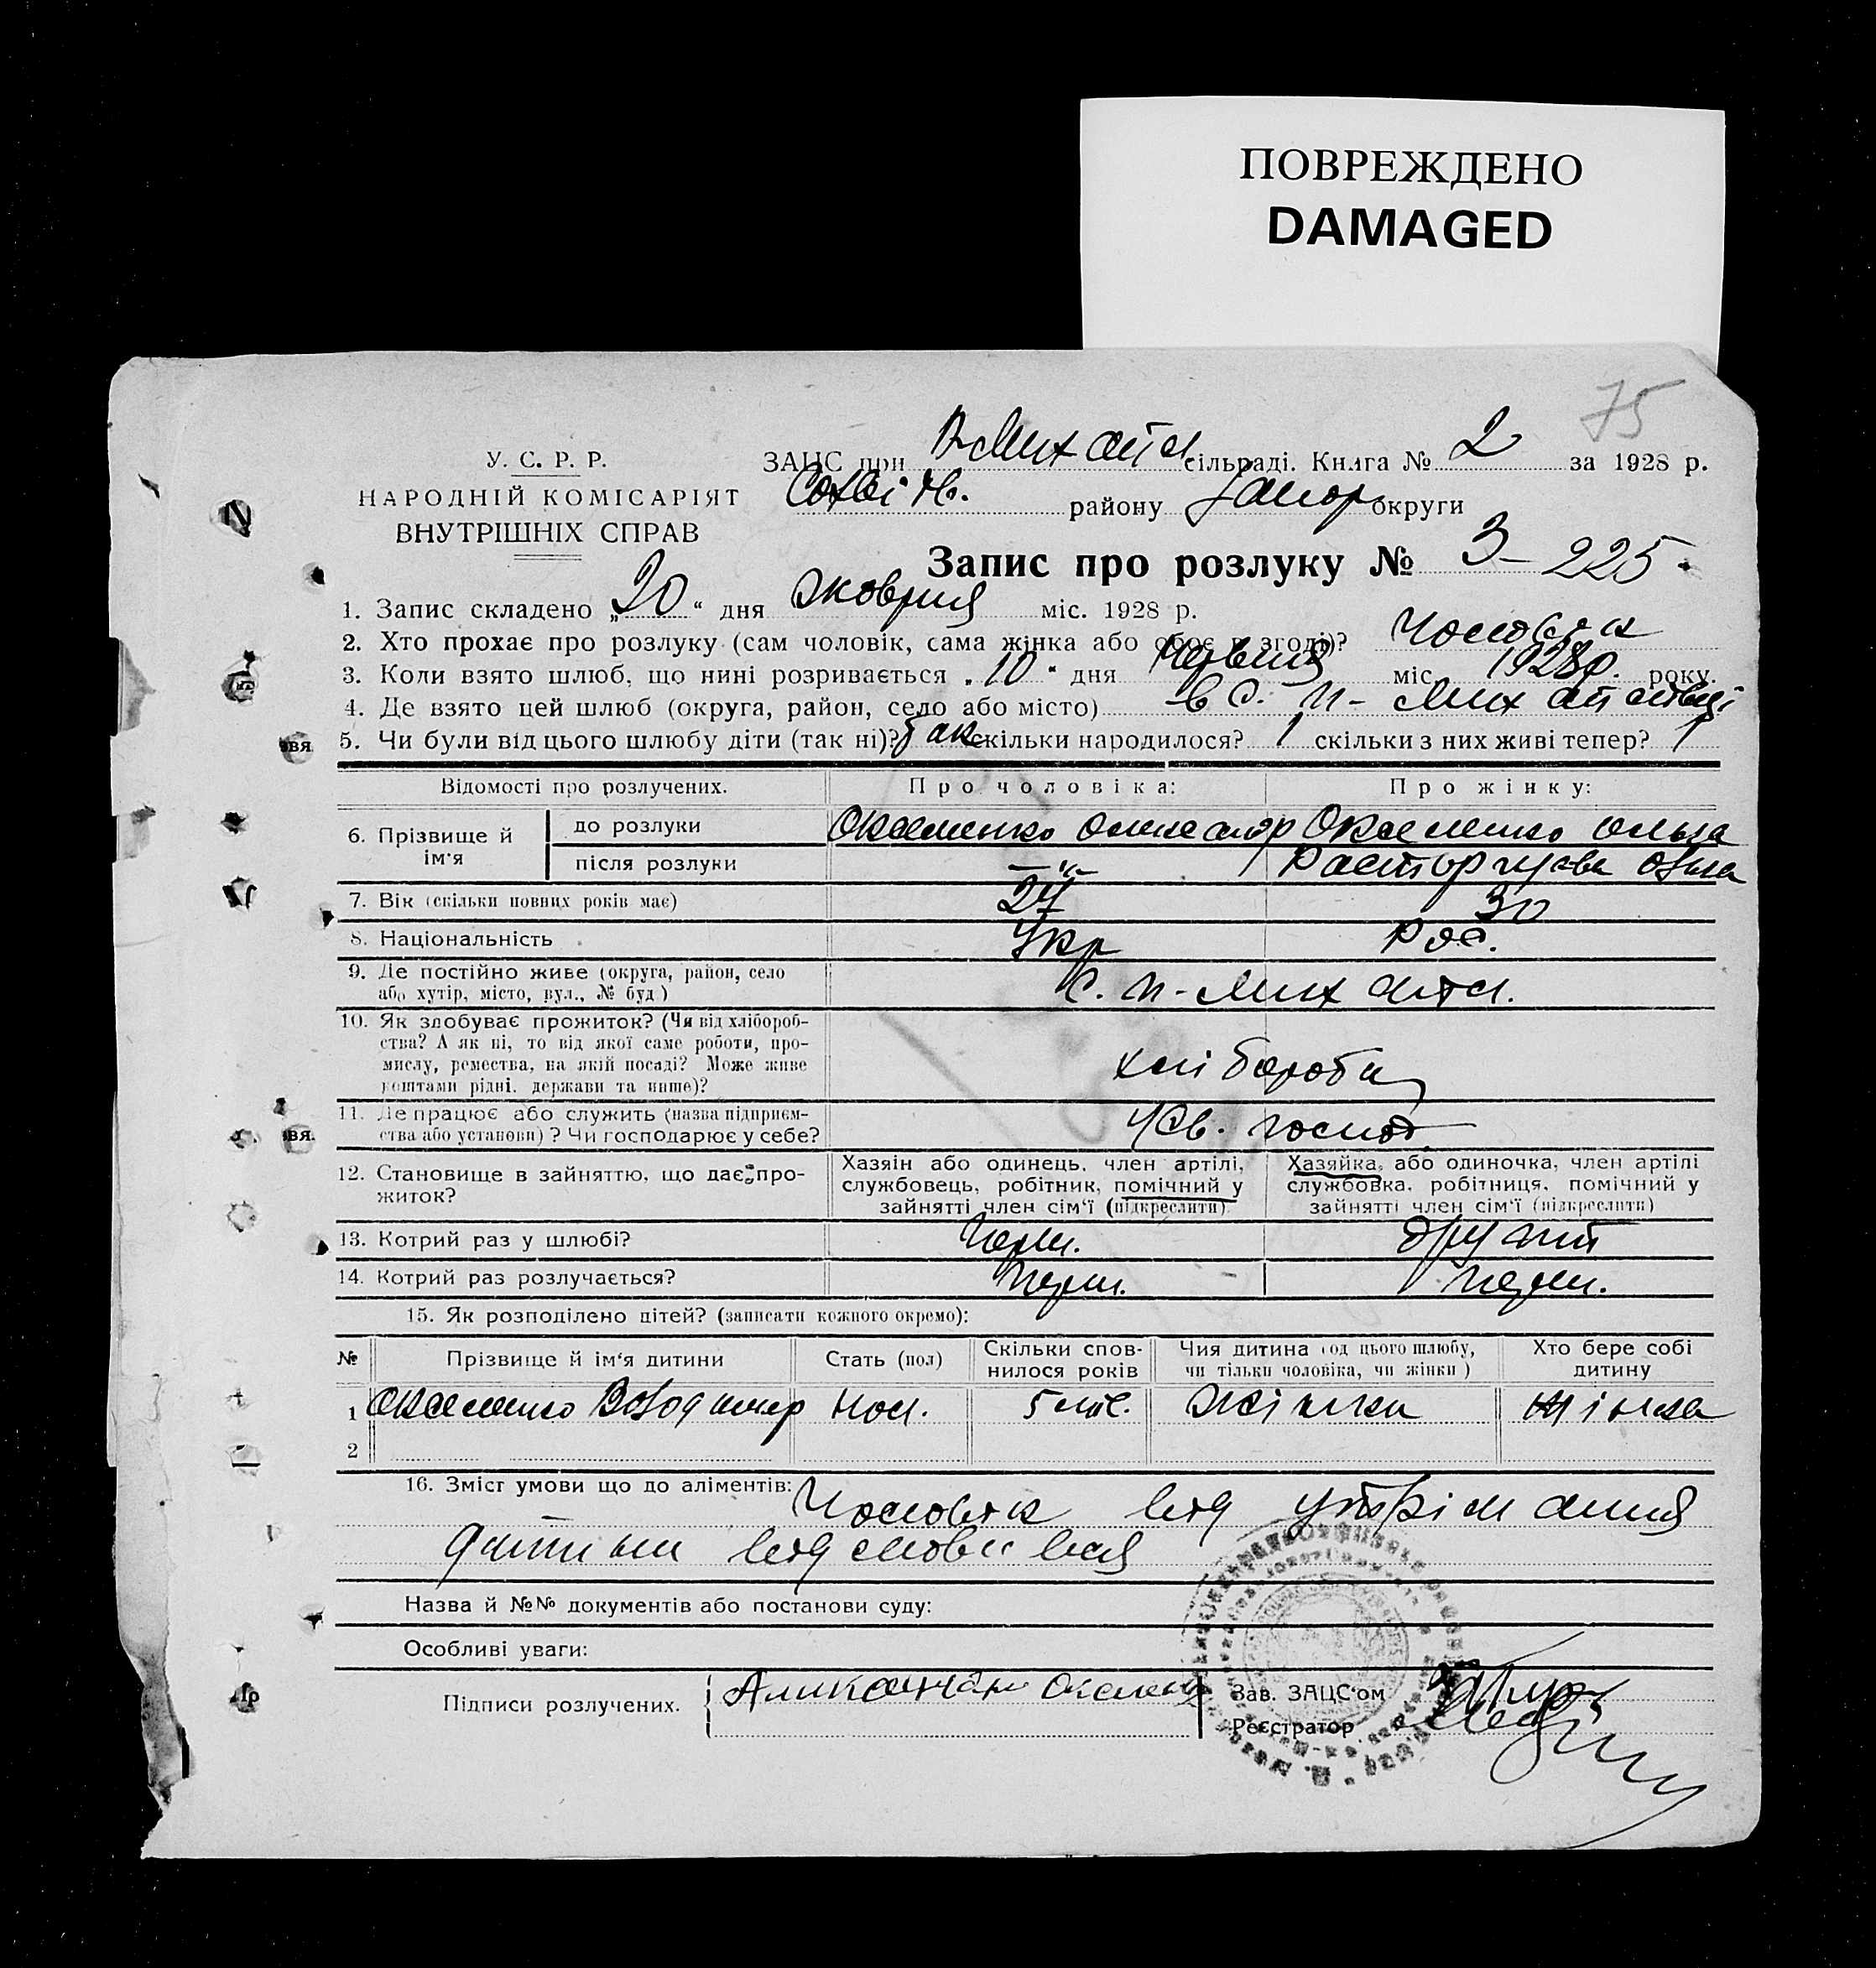 ПОВРЕЖДЕНО
DAMAGED
75
У. С. Р. Р.
НАРОДНІЙ КОМІСАРІЯТ
ВНУТРІШНІХ СПРАВ
ЗАЦС при сільраді. Книга № 2 за 1928 р.
району Запор округи
Запис про розлуку № 3 – 225.
1. Запис складено „20“ дня Жовтня міс. 1928 р.
2. Хто прохає про розлуку (сам чоловік, сама жінка або обоє в згоді)? Чоловік
3. Коли взято шлюб, що нині розривається „10“ дня Червня міс. 1928р. року.
4. Де взято цей шлюб (округа, район, село або місто) в с.
5. Чи були від цього шлюбу діти (так ні)? так скільки народилося? 1 скільки з них живі тепер? 1
Відомості про розлучених. Про чоловіка: Про жінку:
6. Прізвище й ім'я
до розлуки Олександр Ольга
після розлуки —"— Расторгуєва Ольга
7. Вік (скільки повних років має) 24 30
8. Національність Укр Рос.
9. Де постійно живе (округа, район, село
або хутір, місто, вул., № буд.)
10. Як здобуває прожиток? (Чи від хлібороб-
ства? А як ні, то від якої саме роботи, про-
мислу, ремества, на якій посаді? Може живе
коштами рідні, держави та инше)?
хлібороби
11. Де працює або служить (назва підприєм-
ства або установи)? Чи господарює у себе?
господ.
12. Становище в зайняттю, що дає про-
житок?
Хазяін або одинець, член артілі,
службовець, робітник, помічний у
зайнятті член сім'ї (підкреслити).
Хазяйка, або одиночка, член артілі
службовка, робітниця, помічний у
зайнятті член сім'ї (підкреслити)
13. Котрий раз у шлюбі? Перш. другий
14. Котрий раз розлучається? Перш. Перш.
15. Як розподілено дітей? (записати кожного окремо):
№ Прізвище й ім'я дитини Стать (пол) Скільки спов-
нилося років Чия дитина (од цього шлюбу,
чи тільки чоловіка, чи жінки) Хто бере собі
дитину
1 Володимир чол. 5 міс. жінки жінка
2
16. Зміст умови що до аліментів: Чоловік від утрімання
дитини відмовився
Назва й №№ документів або постанови суду:
Особливі уваги:
Підписи розлучених.
Зав. ЗАЦС'ом
Реєстратор